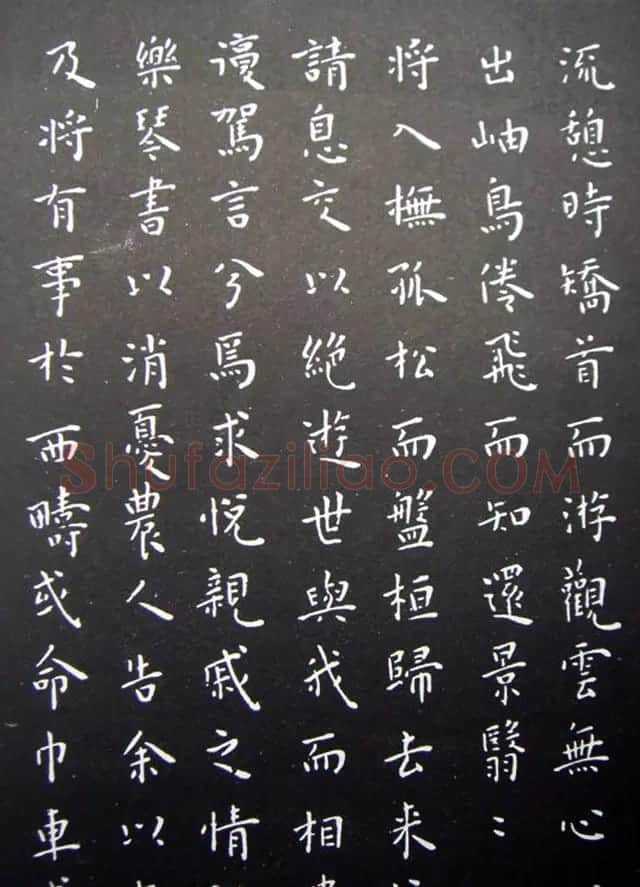 流憩時矯首而游觀雲無心
出岫鳥倦飛而知還景翳〻
将入撫孤松而盤桓歸去来
請息交以絶遊世與我而相
復駕言兮焉求悅親戚之情
樂琴書以消憂農人告余以
及将有事於西疇或命巾車
Shufaziliao.COM